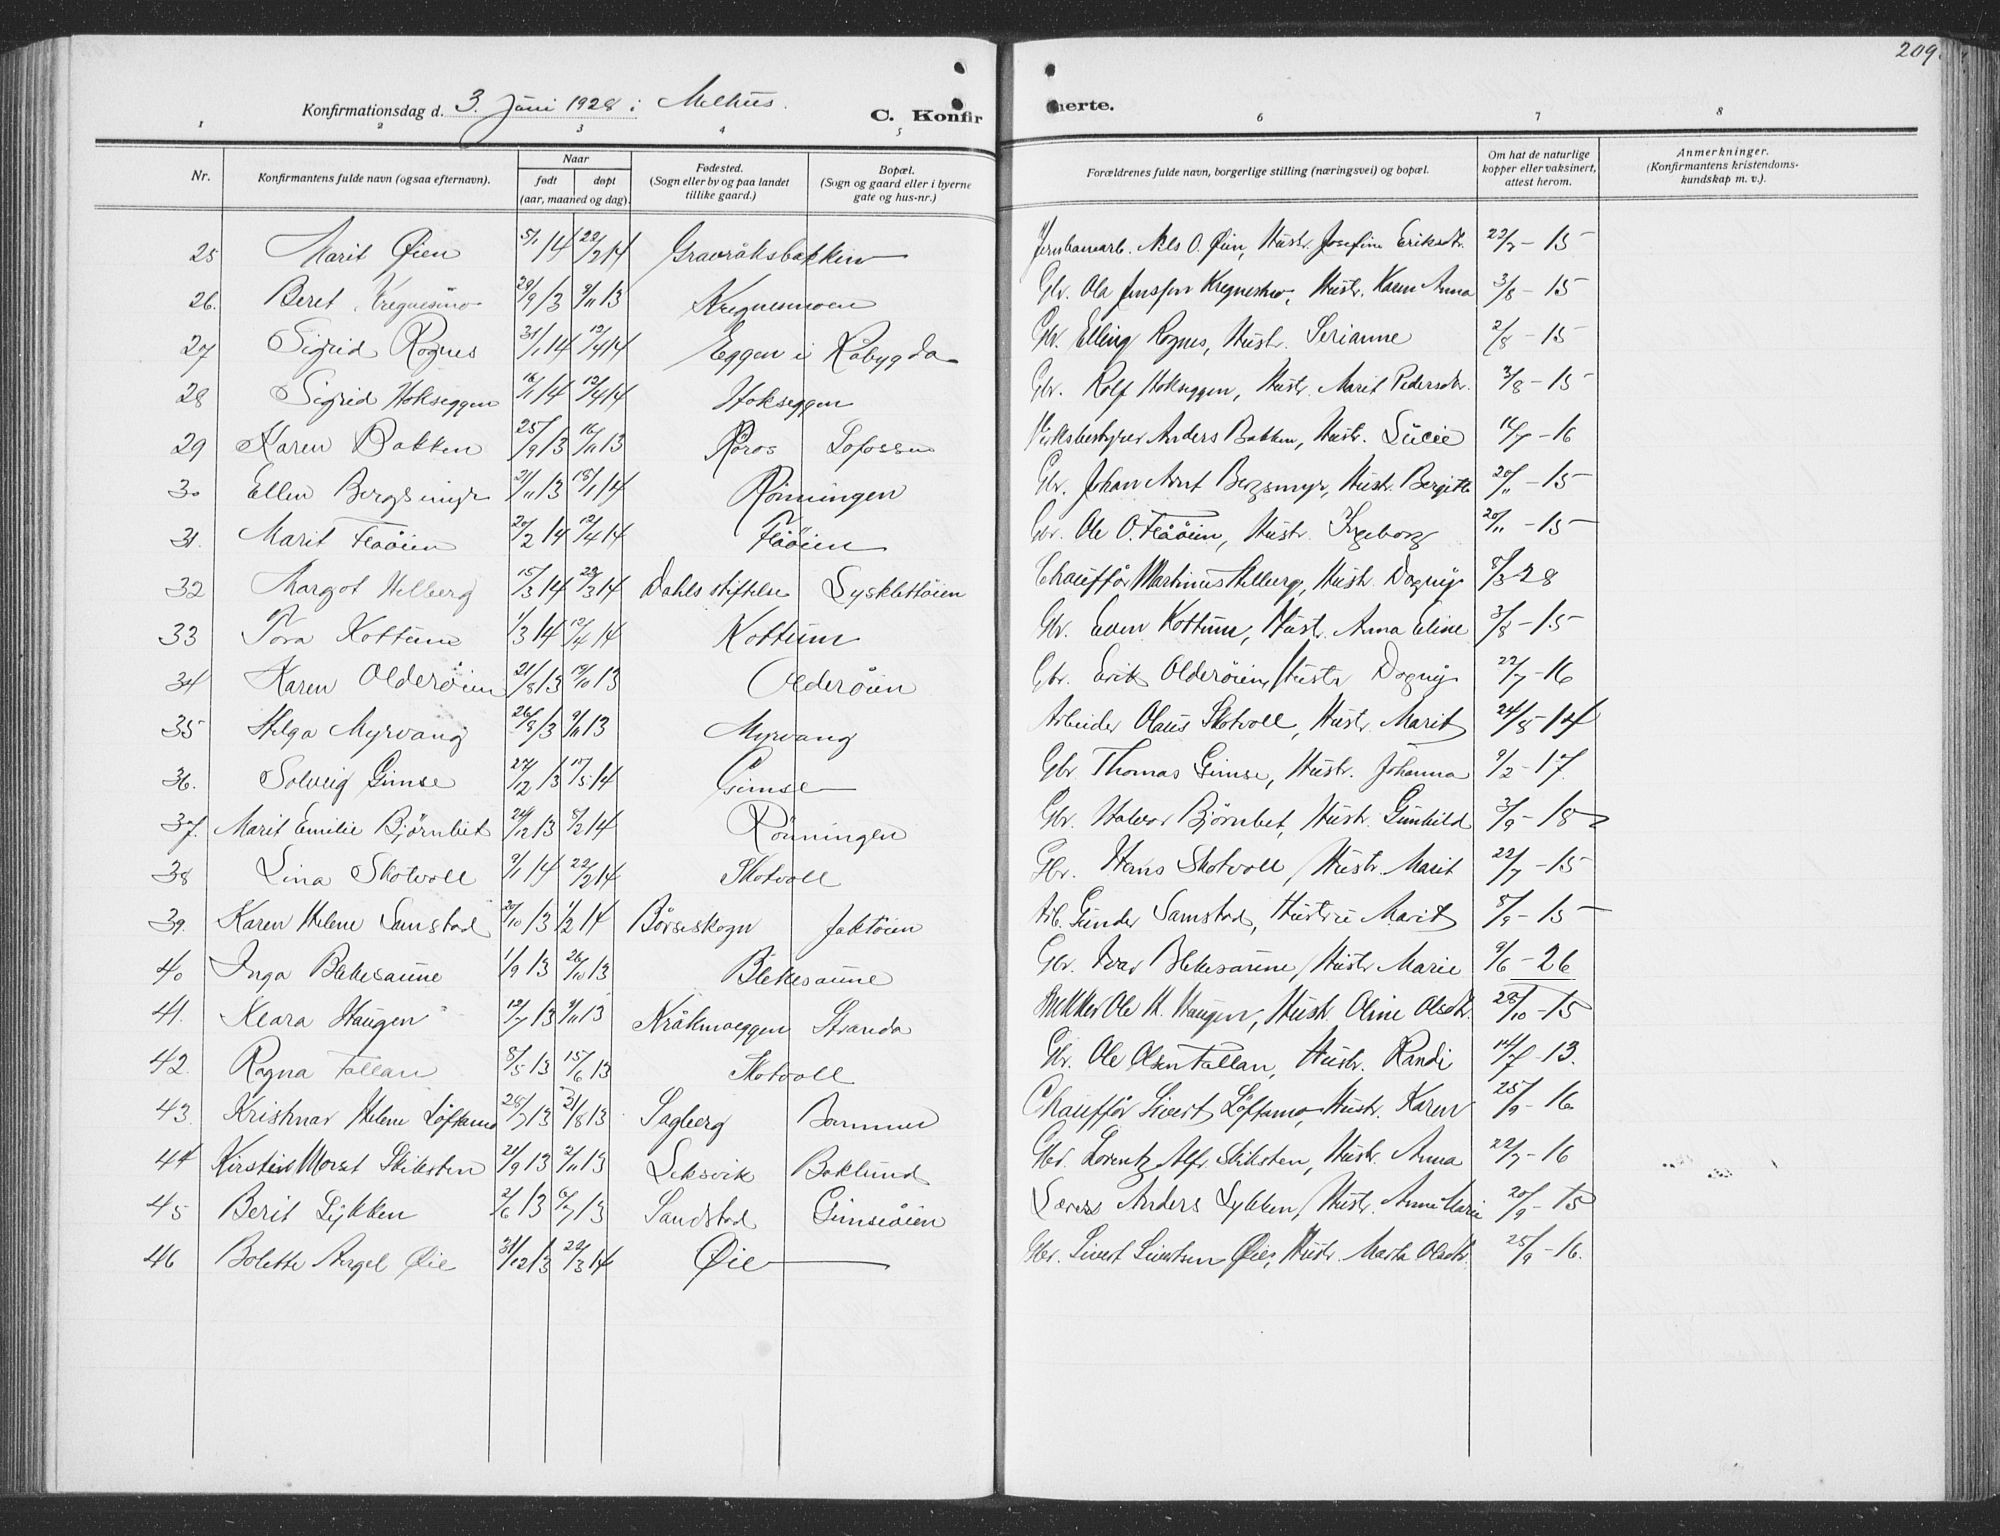 209.
Konfirmationsdag d. 3. Juni 1928 i Melhus.
C. Konfirmerte.
1 2 3 4 5 6 7 8
Nr.
Konfirmantens fulde navn (ogsaa efternavn).
Naar
født
døpt
(aar, maaned og dag).
Fødested.
(Sogn eller by og paa landet
tillike gaard.)
Bopæl.
(Sogn og gaard eller i byerne
gate og hus-nr.)
Forældrenes fulde navn, borgerlige stilling (næringsvei) og bopæl.
Om hat de naturlige
kopper eller vaksinert,
attest herom.
Anmerkninger.
(Konfirmantens kristendoms-
kundskap m. v.).
25 Marit Øien 5/1 14 22/2 14 Gravråksbakken Jernbanearb. Nils O. Øien, Hustr. Josefine Eriksdtr. 22/7 - 15
26. Beret Kregnesmo 29/9 13 9/11 13 Kregnesmoen Gbr. Ola Jensen Kregnesmo, Hustr. Karen Anna 3/8 - 15
27 Sigrid Rognes 31/1 14 12/4 14 Eggen i Råbygda Gbr. Elling Rognes, Hustr. Serianne 2/8 - 15
28 Sigrid Hokseggen 16/1 14 12/4 14 Hokseggen Gbr. Rolf Hokseggen, Hustr. Marit Pedersdtr. 3/8 - 15
29 Karen Bakken 25/9 13 16/11 13 Røros Lofossen Verksbestyrer Anders Bakken, Hustr. Lucie 12/7 - 16
30 Ellen Bergsmyr 21/11 13 18/1 14 Rønningen Gbr. Johan Arnt Bergsmyr, Hustr. Bergitte 20/11 - 15
31. Marit Flåøien 20/2 14 12/4 14 Flåøien Gbr. Ole O. Flåøien, Hustr. Ingeborg 20/11 - 15
32 Margot Helberg 15/3 14 29/3 14 Dahls stiftelse Lysklettøien Chauffør Martinus Helberg, Hustr. Dagny 8/3 28
33 Tora Kottum 1/3 14 12/4 14 Kottum Gbr. Even Kottum, Hustr. Anna Eline 3/8 - 15
34 Karen Olderøien 21/8 13 19/10 13 Olderøien Gbr. Erik Olderøien, Hustr Dagny 22/7 - 16
35 Helga Myrvang 26/8 13 9/11 13 Myrvang Arbeider Olaus Skotvoll, Hustr. Marit 24/8 - 14
36. Solveig Gimse 27/12 13 17/5 14 Gimse Gbr. Thomas Gimse, Hustr. Johanna 9/2 - 17.
37. Marit Emilie Bjørnbet 24/12 13 8/2 14 Rønningen Gbr. Halvor Bjørnbet, Hustr. Gunhild 3/9 - 15
38 Lina Skotvoll 9/1 14 22/2 14 Skotvoll Gbr. Hans Skotvoll, Hustr. Marit 22/7 - 15
39. Karen Helene Samstad 20/10 13 1/2 14 Børseskogn Jaktøien Arb. Gunder Samstad, Hustru Marit 5/9 - 15
40 Inga Blekesaune 1/9 13 26/10 13 Blekesaune Gbr. Ivar Blekesaune, Hustr Marie 9/6 - 26
41. Klara Haugen 12/7 13 9/11 13 Kråkmoeggen Stranda Snekker Ole H. Haugen, Hustr. Oline Olsdtr. 28/10 - 15
42. Ragna Fallan 8/5 13 15/6 13 Skotvoll Gbr. Ole Olsen Fallan, Hustr. Randi 14/7 - 13.
43. Kristmar Helene Løftamo 28/7 13 31/8 13 Sagberg Brammer Chauffør Sivert Løftamo, Hustr. Karen 25/9 - 16
44 Kirsten Morset Skiksten 21/9 13 2/11 13 Leksvik Baklund Gbr. Lorentz Alfr. Skiksten, Hustr. Anna 22/7 - 16
45 Berit Lykken 2/6 13 6/7 13 Sandstad Gimseøien Lærer Anders Lykken, Hustr. Anne Marie 20/9 - 15
46 Bolette Angel Øie 31/12 13 22/3 14 Øie Gbr. Sivert Sivertsen Øie, Hustr. Marta Olsdtr. 25/9 - 16.